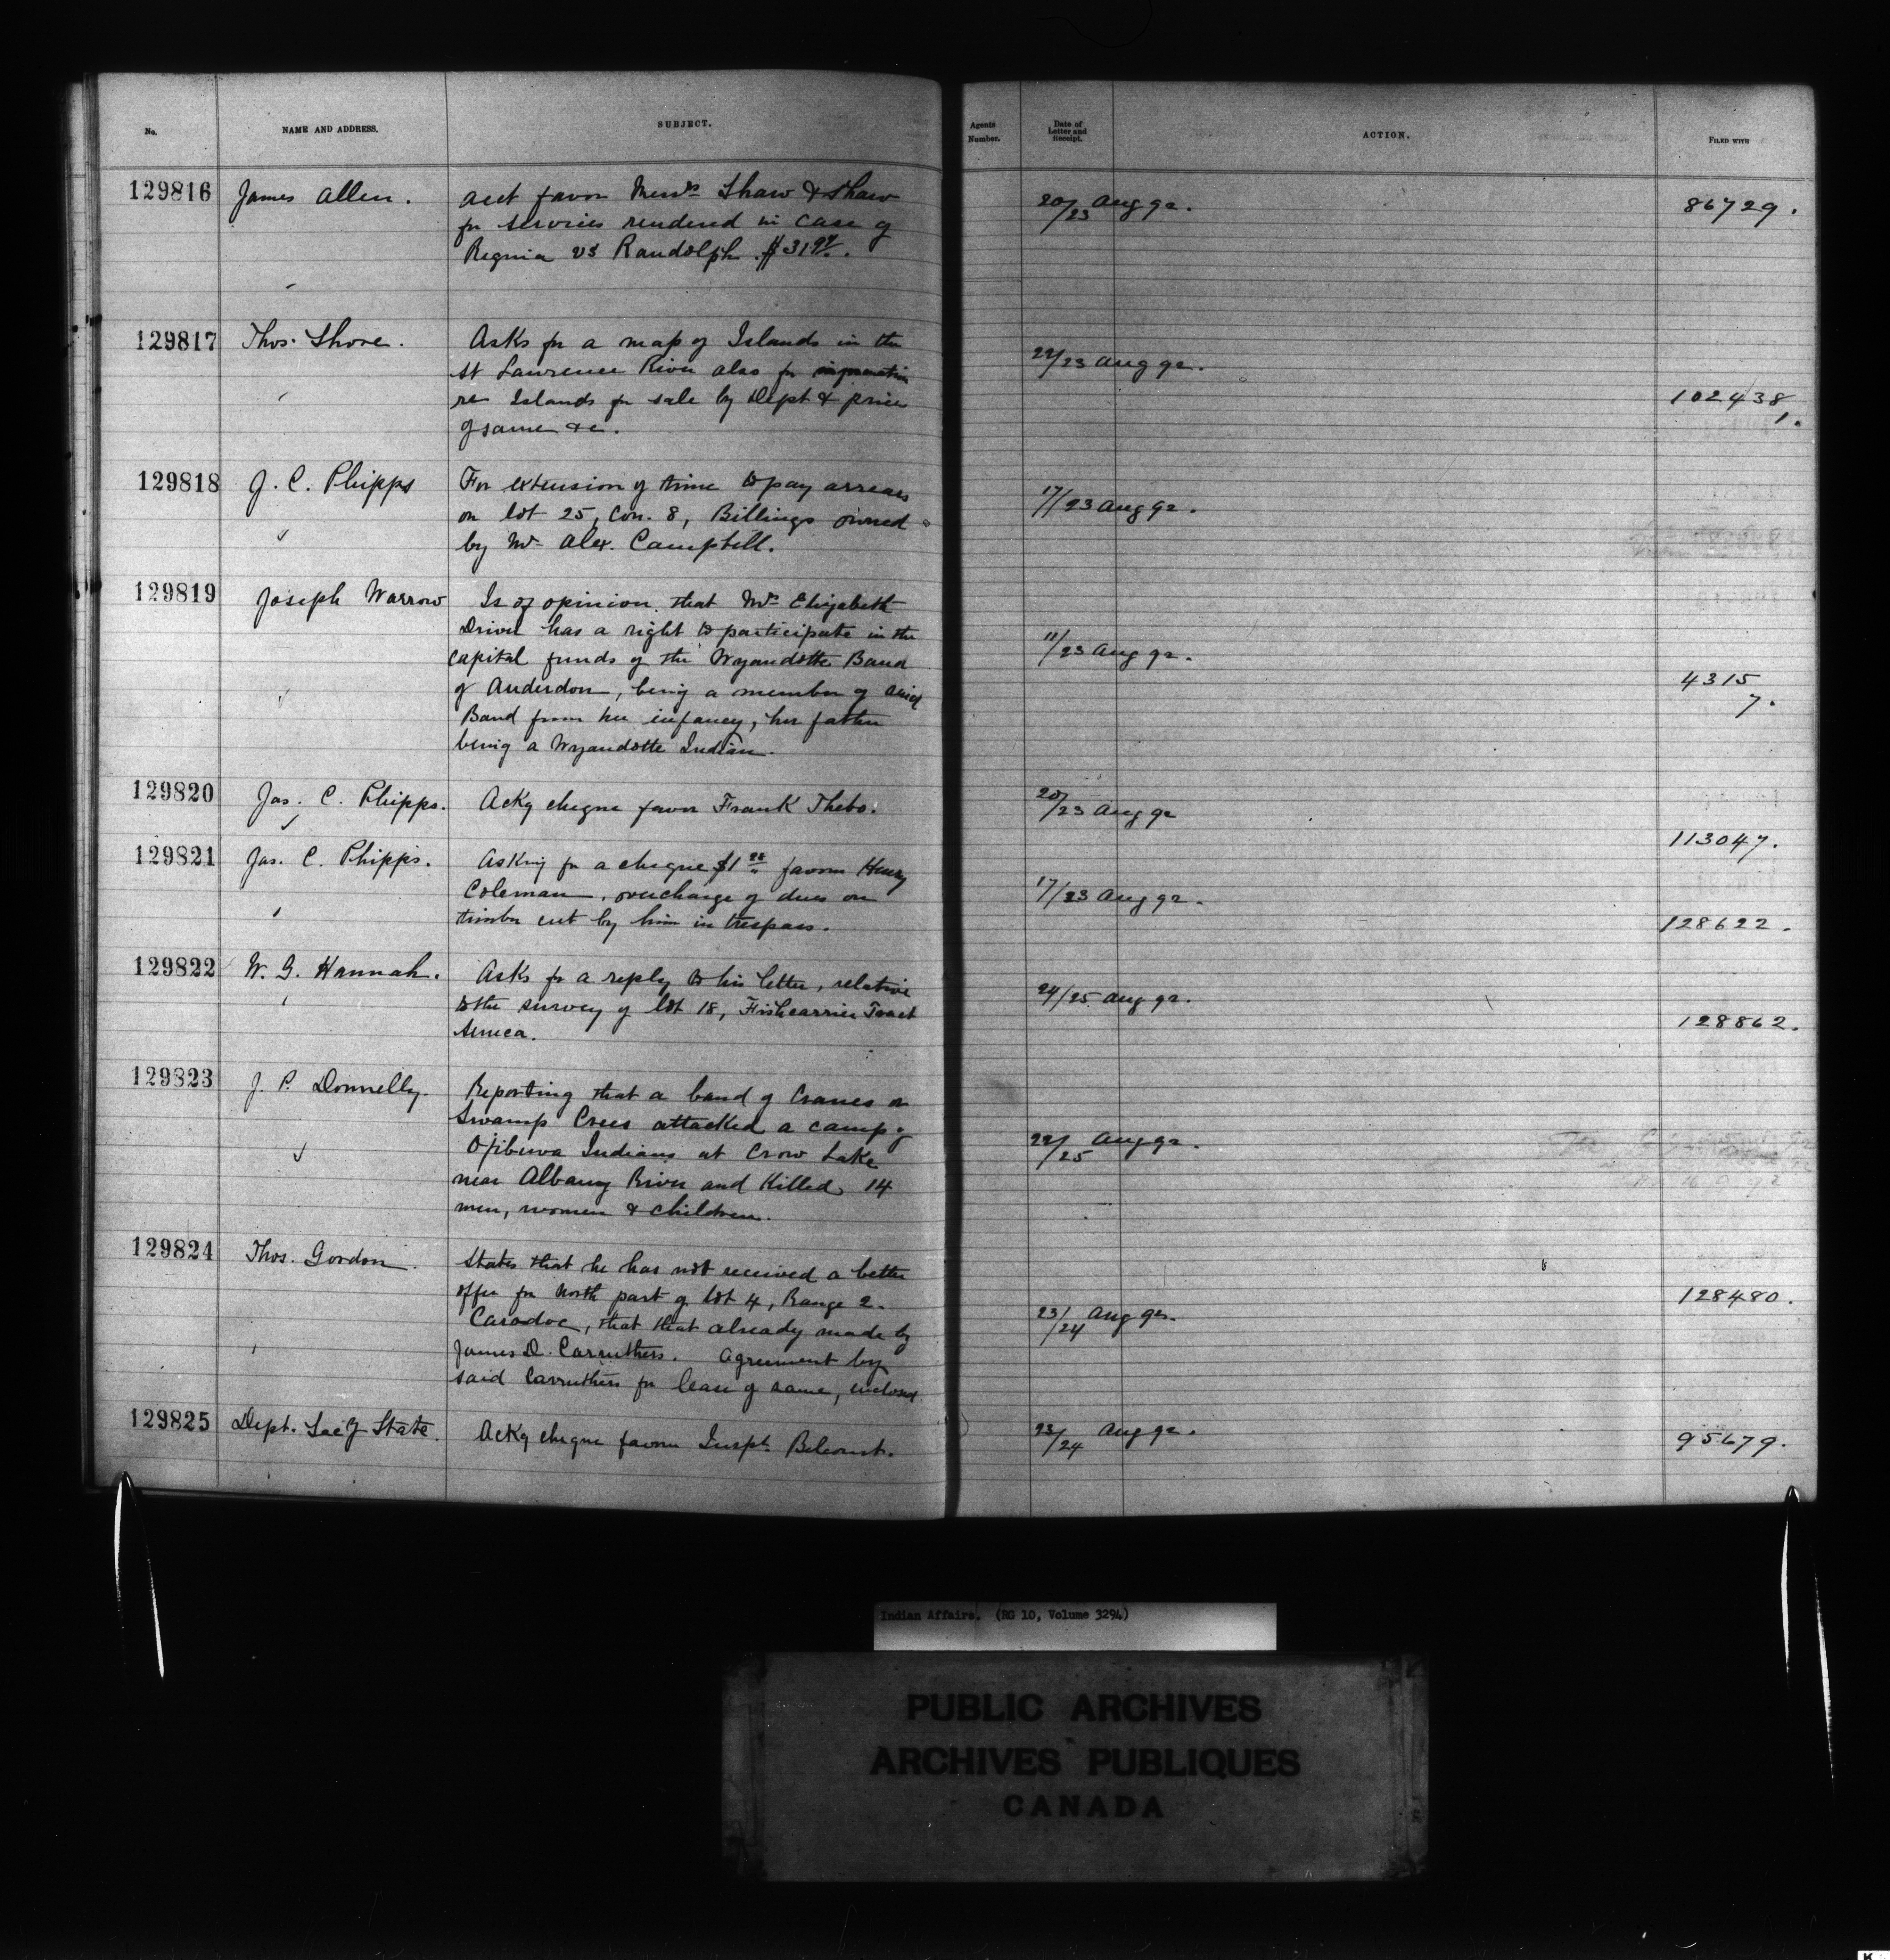 No.
NAME AND ADDRESS.
SUBJECT.
Agents
Number.
Date of
Letter and
Receipt.
ACTION.
FILED WITH
129816
James Allen.
acct favor Messrs Shaw & Shaw
for services rendered in case of
Regina vs Randolph.
20/23 Aug 92.
86729.
129817
Thos. Shore.
Asks for a map of Islands in the
St Lawrence River also for information
re Islands for sale by Dept & price
of same &c.
22/23 Aug 92.
102438
1.
129818
J. C. Phipps
For extension of time to pay arrears
on lot 25, Con. 8, Billings owned
by Mr. Alex. Campbell.
17/23 Aug 92.
129819
Joseph Warrow
Is of opinion that Mrs Elizabeth
Driver has a right to participate in the
capital funds of the Wyandotte Band
of Anderdon, being a member of said
Band from her infancy, her father
being a Wyandotte Indian.
11/23 Aug 92.
4315
7.
129820
Jas. C. Phipps.
Ackg cheque favor Frank Thebo.
20/23 Aug 92
113047.
129821
Jas. C. Phipps.
Asking for a cheque favor Henry
Coleman, overcharge of dues on
timber cut by him in trespass.
17/23 Aug 92.
128622.
129822
W. G. Hannah.
Asks for a reply to his letter, relative
to the survey of lot 18, Fishcarrier Tract
Seneca.
24/25 Aug 92.
128862.
129823
J. P. Donnelly.
Reporting that a band of Cranes or
Swamp Crees attacked a camp of
Ojibewa Indians at Crow Lake
near Albany River and Killed 14
men, women & children.
22/25 Aug 92.
129824
Thos. Gordon.
States that he has not received a better
offer for North part of lot 4, Range 2.
Caradoc, that that already made by
James D. Carruthers. Agreement by
said Carruthers for lease of same, enclosed
23/24 Aug 92.
128480.
129825
Dept. Sec of State.
Ackg cheque favor Inspt. Belcourt.
23/24 Aug 92.
95679.
Indian Affairs. (RG 10, Volume 3294)
PUBLIC ARCHIVES
ARCHIVES PUBLIQUES
CANADA